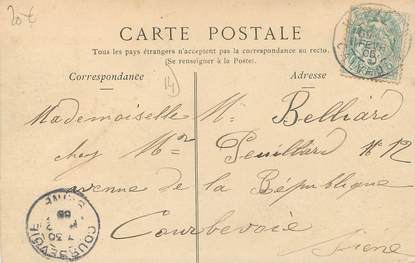 20 €
CARTE POSTALE
Tous les pays étrangers n'acceptent pas la correspondance au recto.
(Se renseigner à la Poste).
Correspondance
Adresse
14
Mademoiselle M. Belliard
chez Mme Peuillard N° 12
avenue de la République
Courbevoie
Seine
COURBEVOIE
7 30
SEINE